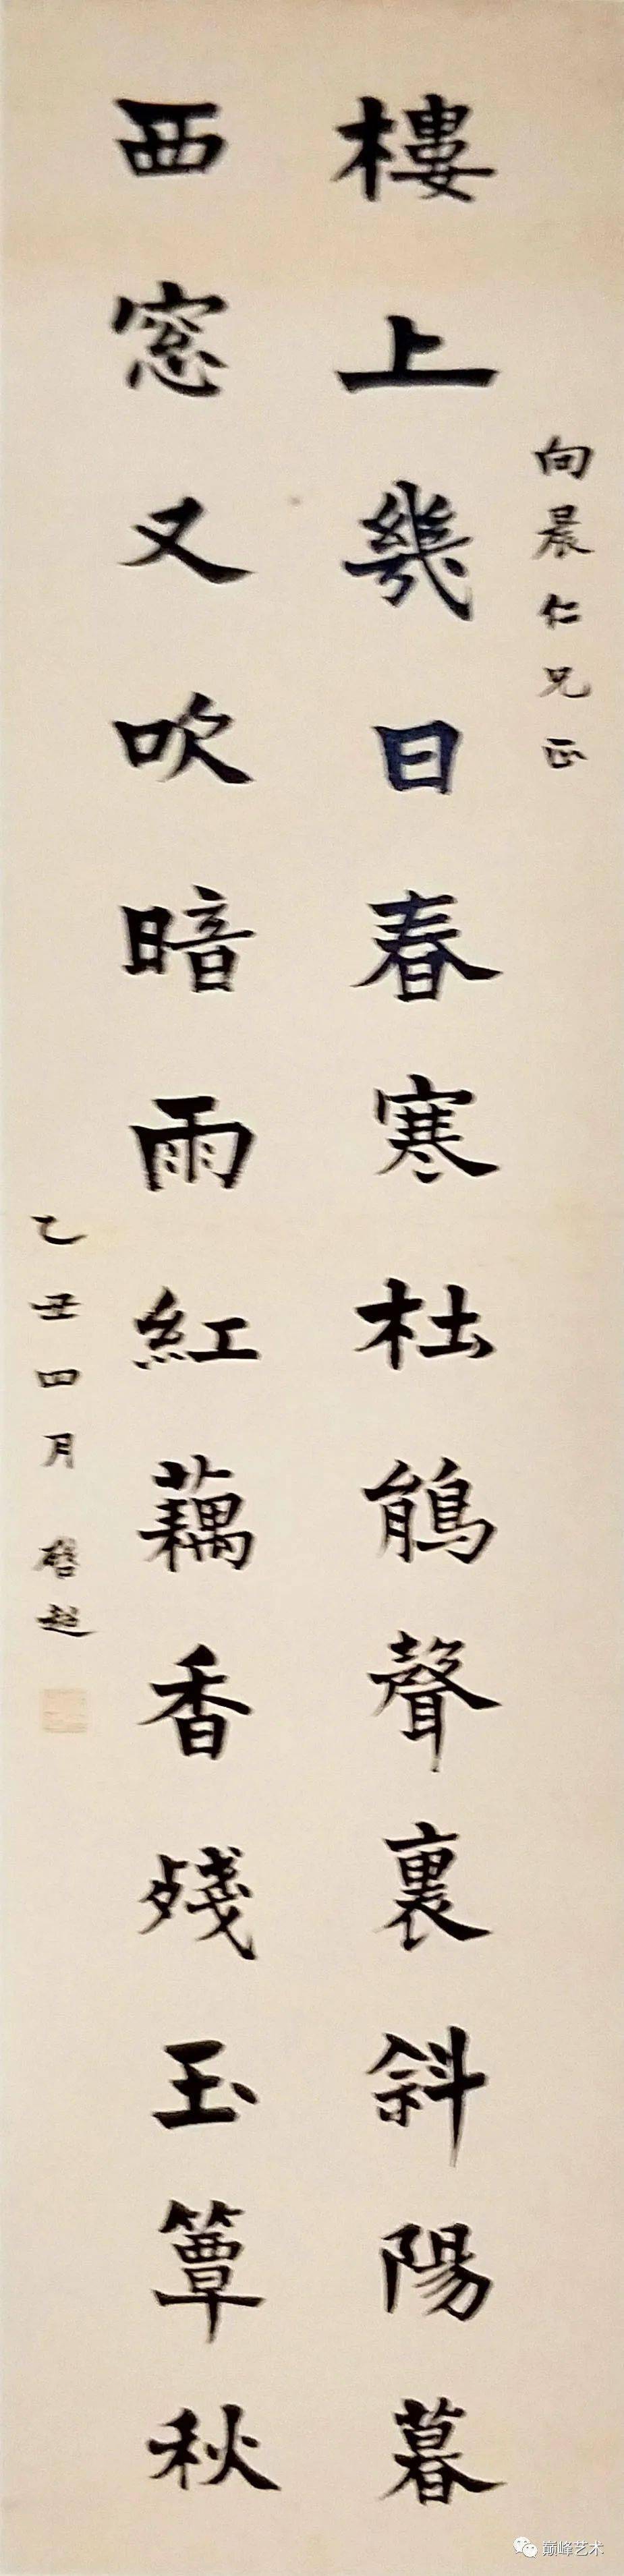 向晨仁兄正
樓上幾日春寒杜鵑聲裏斜陽暮
西窓又吹暗雨紅藕香殘玉簟秋
乙丑四月 啓超
巅峰艺术